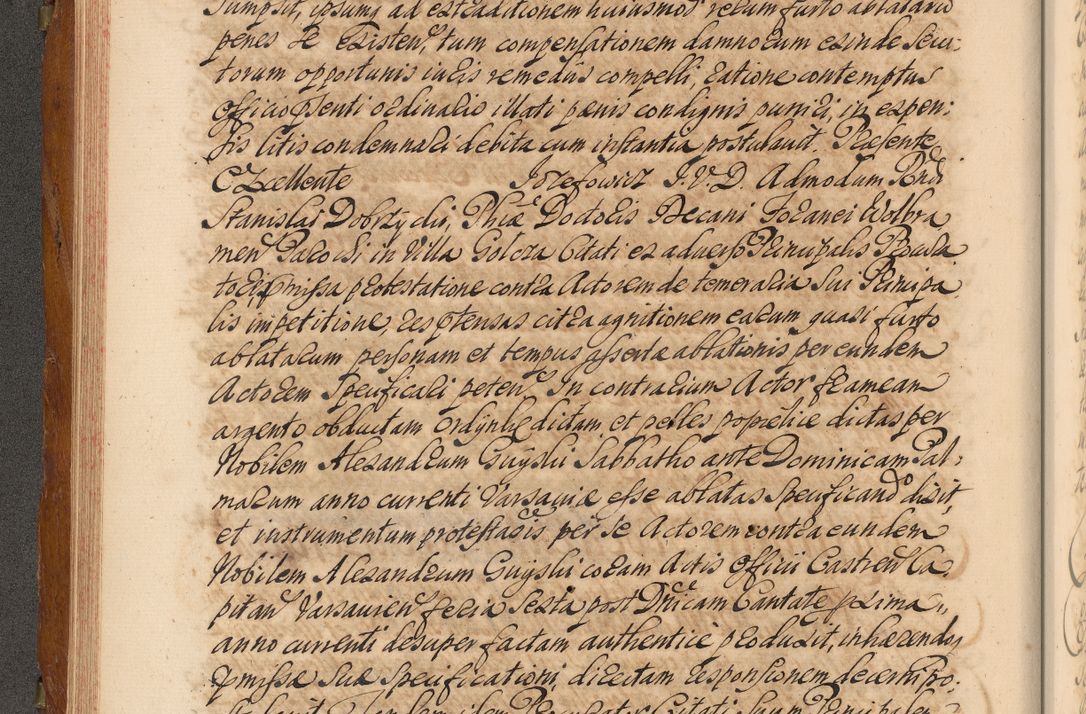 sumpsit, ipsumq ad extraditionem huiusmodi rerum furto ablatarum
penes se existen, tum compensationem damnorum exinde secu-
torum opportunis iuris remediis compelli, ratione contemptus
officio pñti ordinario illati pænis condignis puniri, in expen-
sis litis condemnari debita cum instantia postulavit. Præsente
Excellente Jozefowicz J. V. D. Admodum Rndi
Stanislai Dobrzycki, Phiæ Doctoris Decani Foranei Wolbra
men Parochi in Villa Golcza Citati ex adverso Principalis Procura
tor præmissa protestatione contra Actorem de temeraria sui Principa
lis impetitione, respensas citra agnitionem earum quasi furto
ablatarum personam et tempus assertæ ablationis per eundem
Actorem specificari peten. In contrarium Actor frameam
argento obductam Ordynkę dictam et pelles popielice dictas per
Nobilem Alexandrum Guyski Sabbatho ante Dominicam Pal-
marum anno currenti Varsaviæ esse ablatas specificando dixit,
et instrumentum protestacis per se Actorem contra eundem
Nobilem Alexandrum Guyski coram Actis Officii Castren Ca
pitan Varsavien feria Sexta post Dnicam Cantate pxima
anno currenti desuper factam authentice produxit, inhærendoq
præmissæ suæ specificationi, directam responsionem decerni po-
stulavit. Tandem idem Procurator Citati suum Principalem